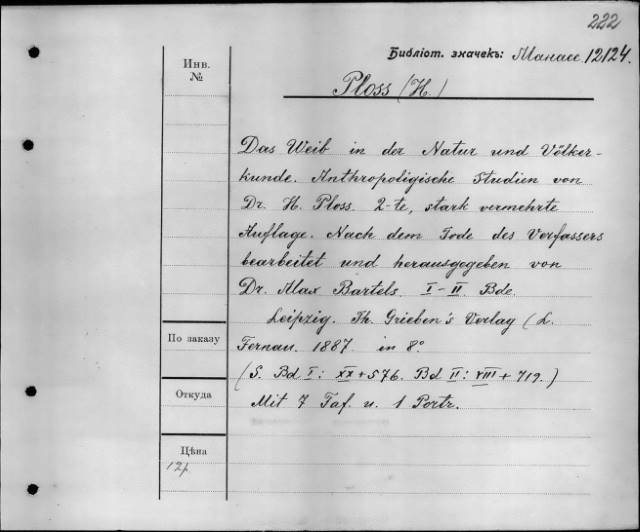 222
Библіот. значекъ: Манасс. 12124.
Инв.
№
Ploss (H.)
Das Weib in der Natur und Völker-
kunde. Anthropoligische Studien von
Dr. H. Ploss. 2-te, stark vermehrte
Auflage. Nach dem Tode des Verfassers
bearbeitet und herausgegeben von
Dr. Max Bartels. I-II. Bde.
Leipzig. Th. Grieben's Verlag (L.
Fernau. 1887. in 8°
(S. Bd I: XX+576. Bd II: VIII+719.)
Mit 7 Taf. u. 1 Portr.
По заказу
Откуда
Цѣна
12р